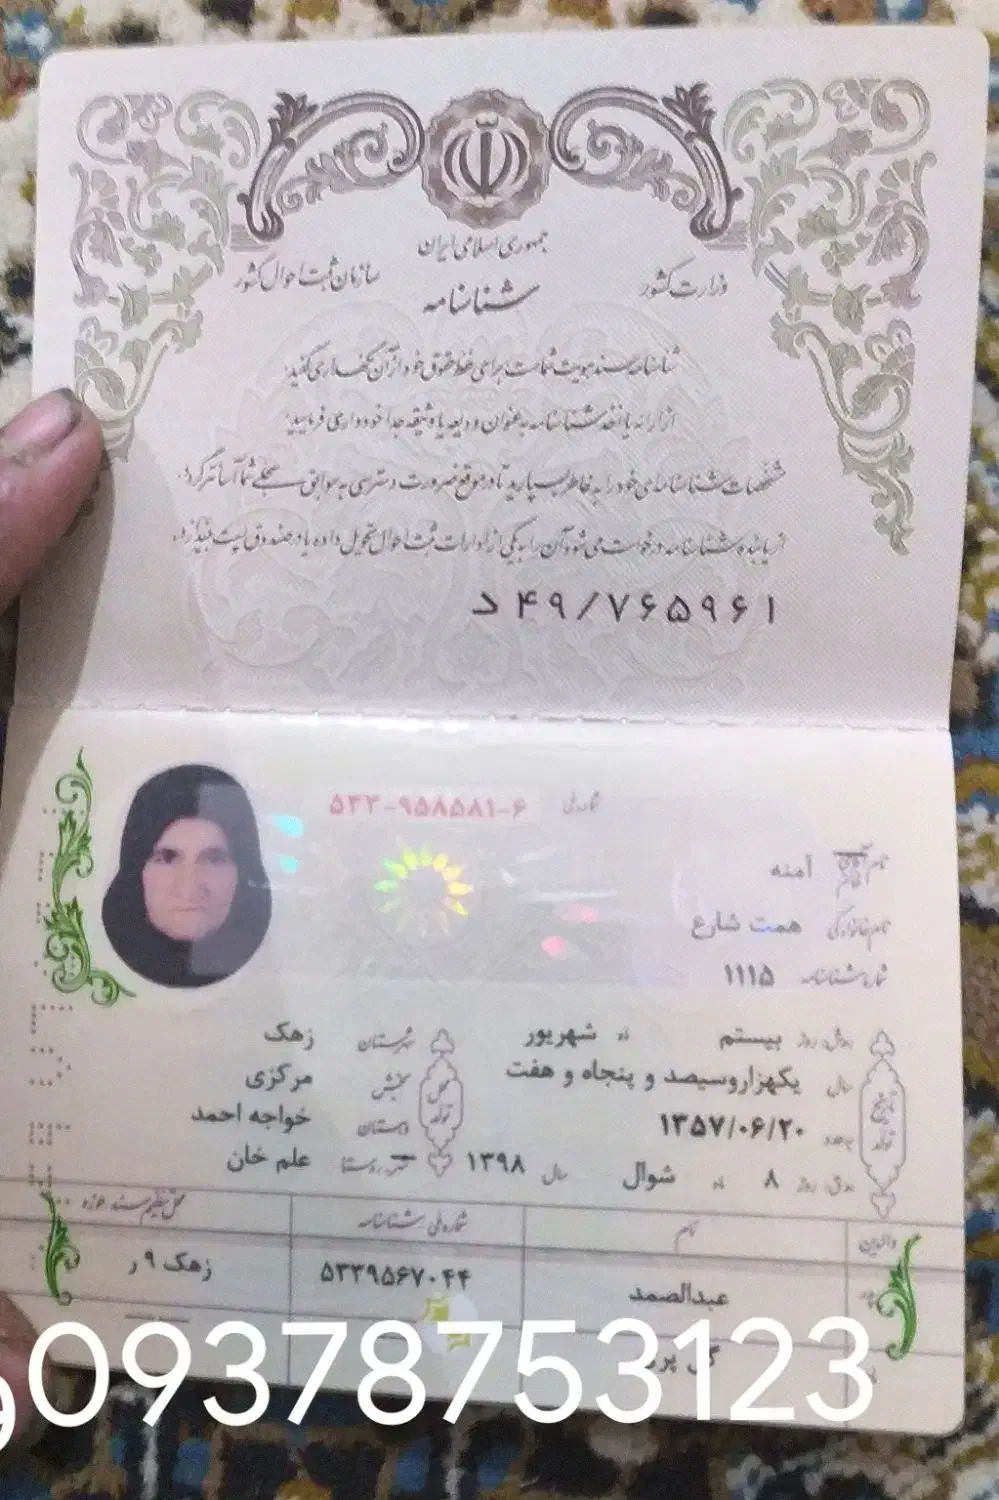 جمهوری اسلامی ایران
وزارت کشور
سازمان ثبت احوال کشور
شناسنامه
شناسنامه سند هویت شماست برای حفظ حقوق خود از آن نگهداری کنید.
از ارائه یا اخذ شناسنامه به عنوان ودیعه یا وثیقه جدا خودداری فرمایید.
مشخصات شناسنامه‌ای خود را به خاطر بسپارید تا در موقع ضرورت دسترسی به سوابق سجلی شما آسانتر گردد.
از یابنده شناسنامه درخواست می‌شود آن را به یکی از ادارات ثبت احوال تحویل داده یا در صندوق پست بیندازد.
د ۴۹/۷۶۵۹۶۱
شماره ملی ۵۳۳-۹۵۸۵۸۱-۶
نام آقای خانم آمنه
نام خانوادگی همت شارع
شماره شناسنامه ۱۱۱۵
تاریخ تولد
روز بیستم ماه شهریور
سال یکهزاروسیصد و پنجاه و هفت
۱۳۵۷/۰۶/۲۰
ه‍.ق. روز ۸ ماه شوال سال ۱۳۹۸
محل تولد
شهرستان زهک
بخش مرکزی
دهستان خواجه احمد
شهر، روستا علم خان
والدین نام شماره ملی، شناسنامه محل تنظیم سند، حوزه
پدر عبدالصمد ۵۳۳۹۵۶۷۰۴۴ زهک ۹ر
گل
09378753123